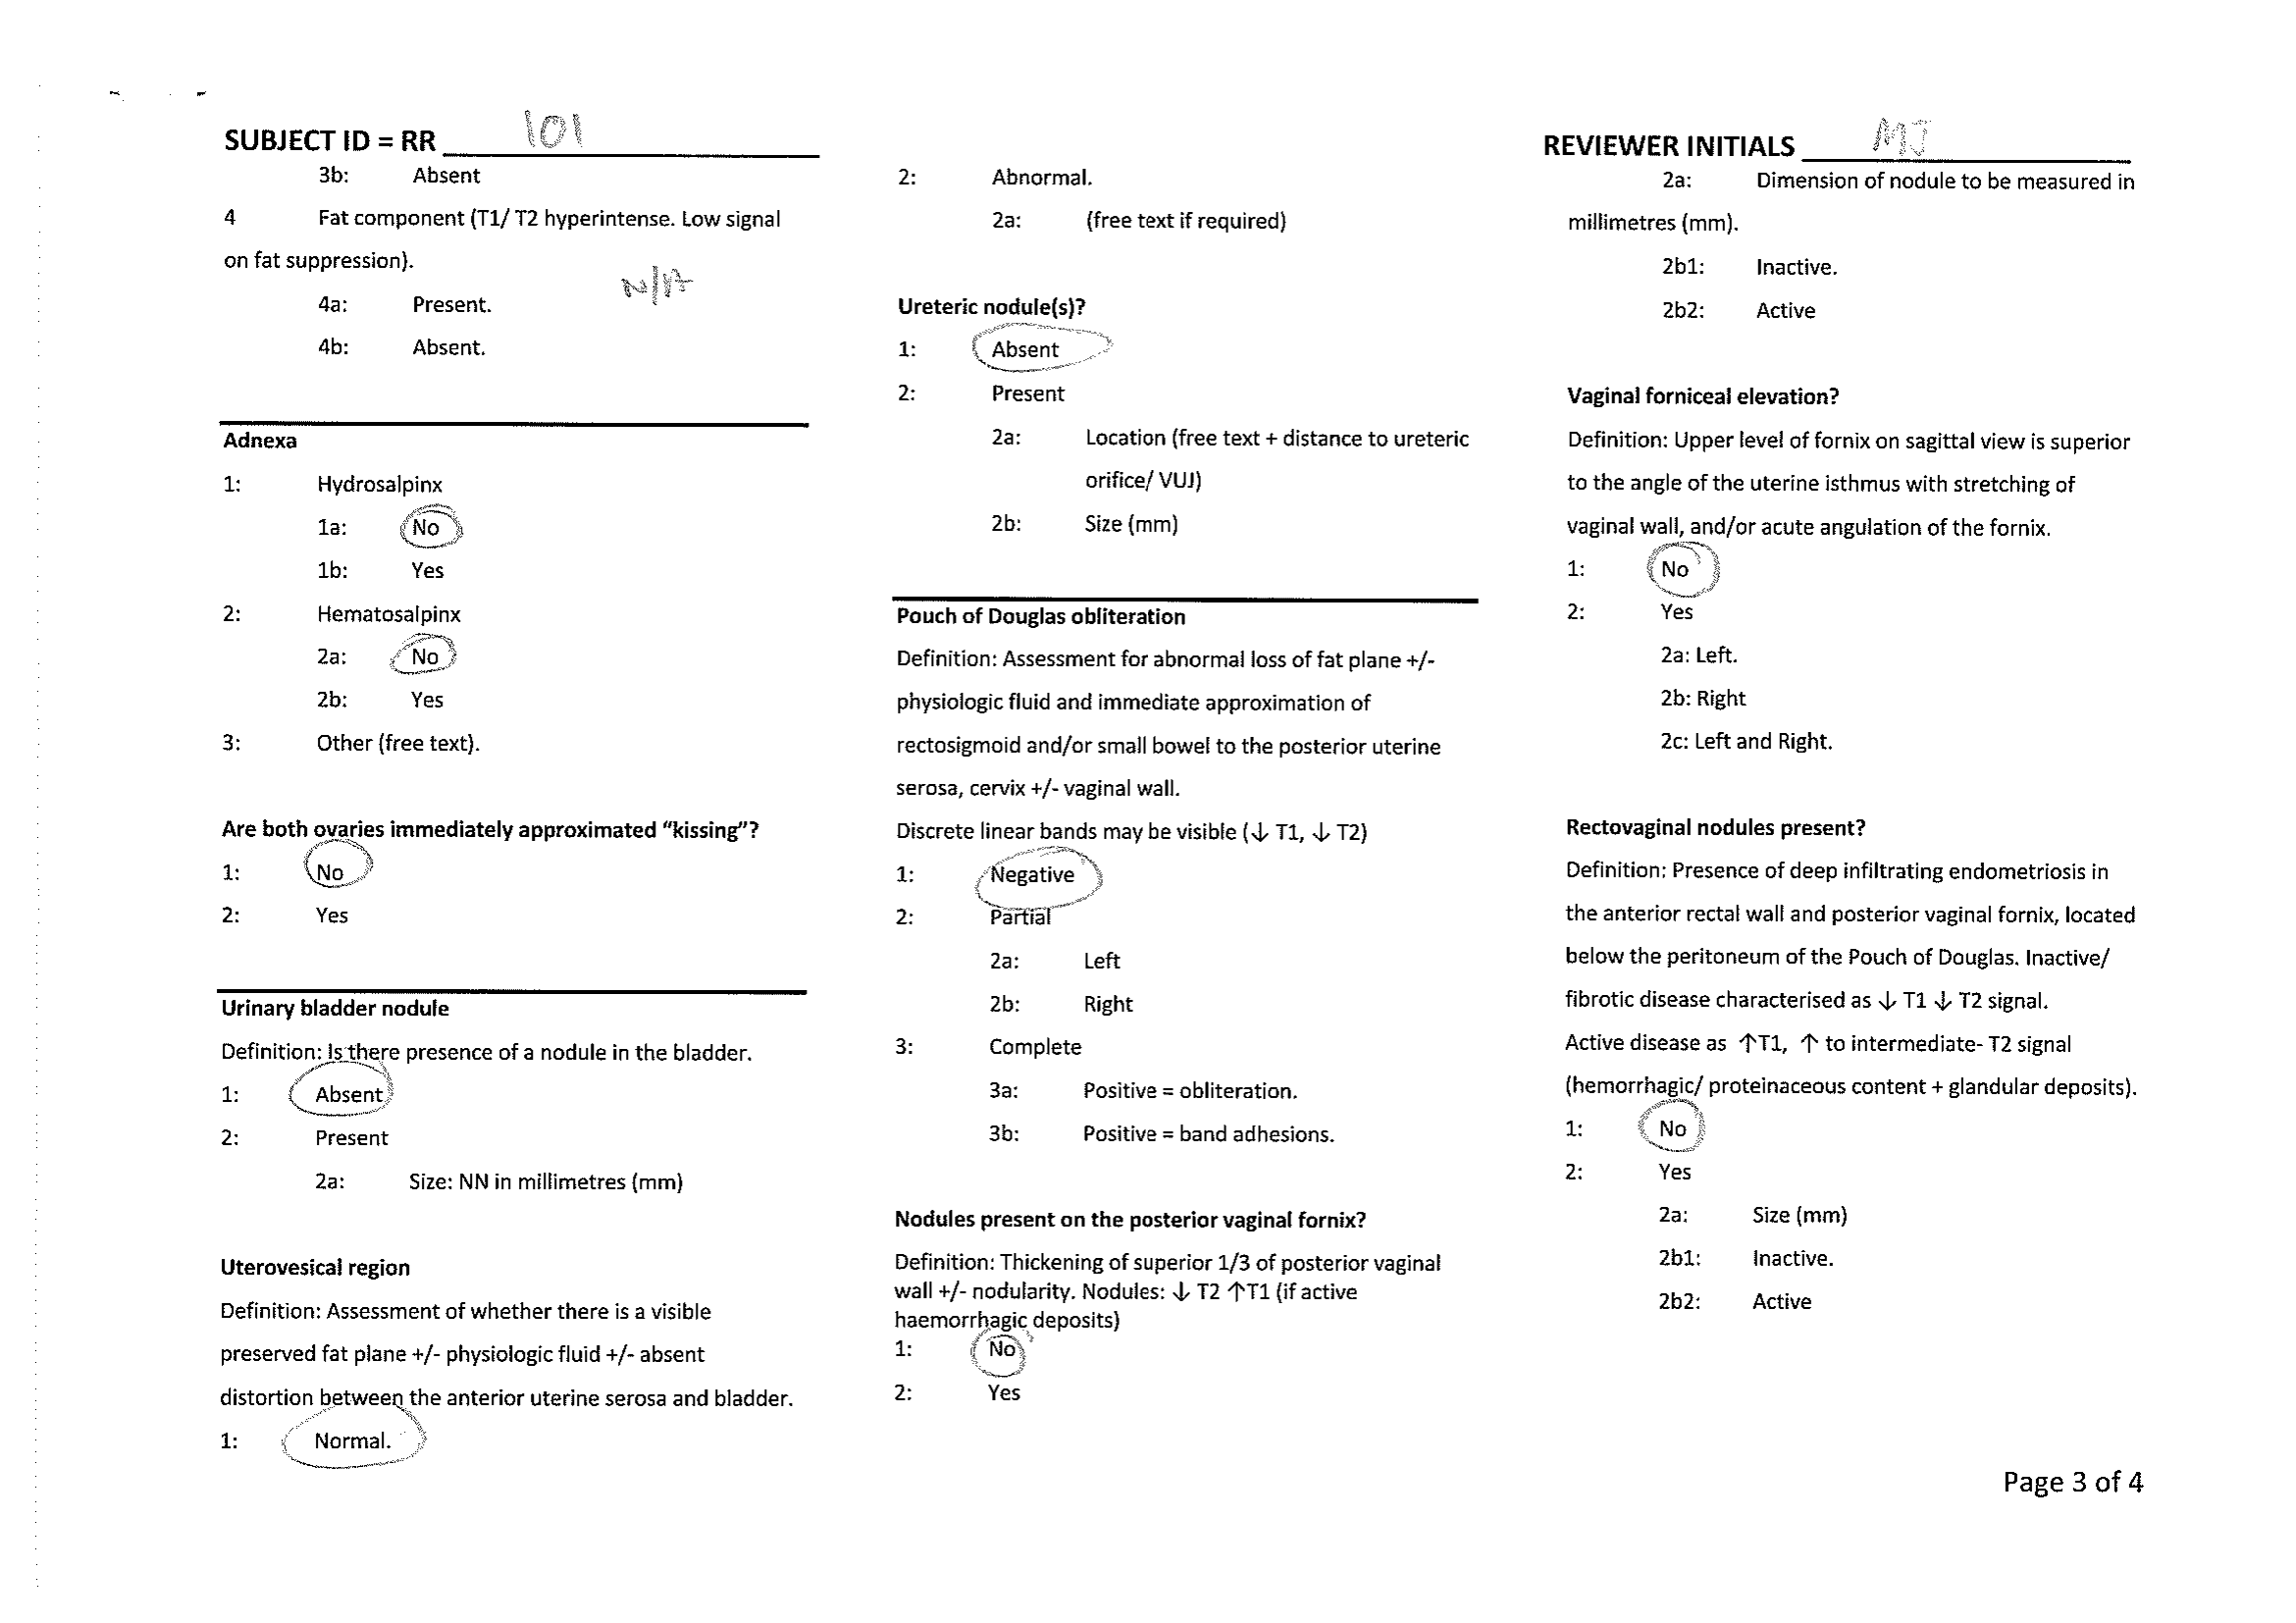 SUBJECT ID = RR 101
3b: Absent
4 Fat component (T1/ T2 hyperintense. Low signal
on fat suppression).
N/A
4a: Present.
4b: Absent.
Adnexa
1: Hydrosalpinx
1a: No
1b: Yes
2: Hematosalpinx
2a: No
2b: Yes
3: Other (free text).
Are both ovaries immediately approximated “kissing”?
1: No
2: Yes
Urinary bladder nodule
Definition: Is there presence of a nodule in the bladder.
1: Absent
2: Present
2a: Size: NN in millimetres (mm)
Uterovesical region
Definition: Assessment of whether there is a visible
preserved fat plane +/- physiologic fluid +/- absent
distortion between the anterior uterine serosa and bladder.
1: Normal.
2: Abnormal.
2a: (free text if required)
Ureteric nodule(s)?
1: Absent
2: Present
2a: Location (free text + distance to ureteric
orifice/ VUJ)
2b: Size (mm)
Pouch of Douglas obliteration
Definition: Assessment for abnormal loss of fat plane +/-
physiologic fluid and immediate approximation of
rectosigmoid and/or small bowel to the posterior uterine
serosa, cervix +/- vaginal wall.
Discrete linear bands may be visible (↓ T1, ↓ T2)
1: Negative
2: Partial
2a: Left
2b: Right
3: Complete
3a: Positive = obliteration.
3b: Positive = band adhesions.
Nodules present on the posterior vaginal fornix?
Definition: Thickening of superior 1/3 of posterior vaginal
wall +/- nodularity. Nodules: ↓ T2 ↑T1 (if active
haemorrhagic deposits)
1: No
2: Yes
REVIEWER INITIALS MJ
2a: Dimension of nodule to be measured in
millimetres (mm).
2b1: Inactive.
2b2: Active
Vaginal forniceal elevation?
Definition: Upper level of fornix on sagittal view is superior
to the angle of the uterine isthmus with stretching of
vaginal wall, and/or acute angulation of the fornix.
1: No
2: Yes
2a: Left.
2b: Right
2c: Left and Right.
Rectovaginal nodules present?
Definition: Presence of deep infiltrating endometriosis in
the anterior rectal wall and posterior vaginal fornix, located
below the peritoneum of the Pouch of Douglas. Inactive/
fibrotic disease characterised as ↓ T1 ↓ T2 signal.
Active disease as ↑T1, ↑ to intermediate- T2 signal
(hemorrhagic/ proteinaceous content + glandular deposits).
1: No
2: Yes
2a: Size (mm)
2b1: Inactive.
2b2: Active
Page 3 of 4